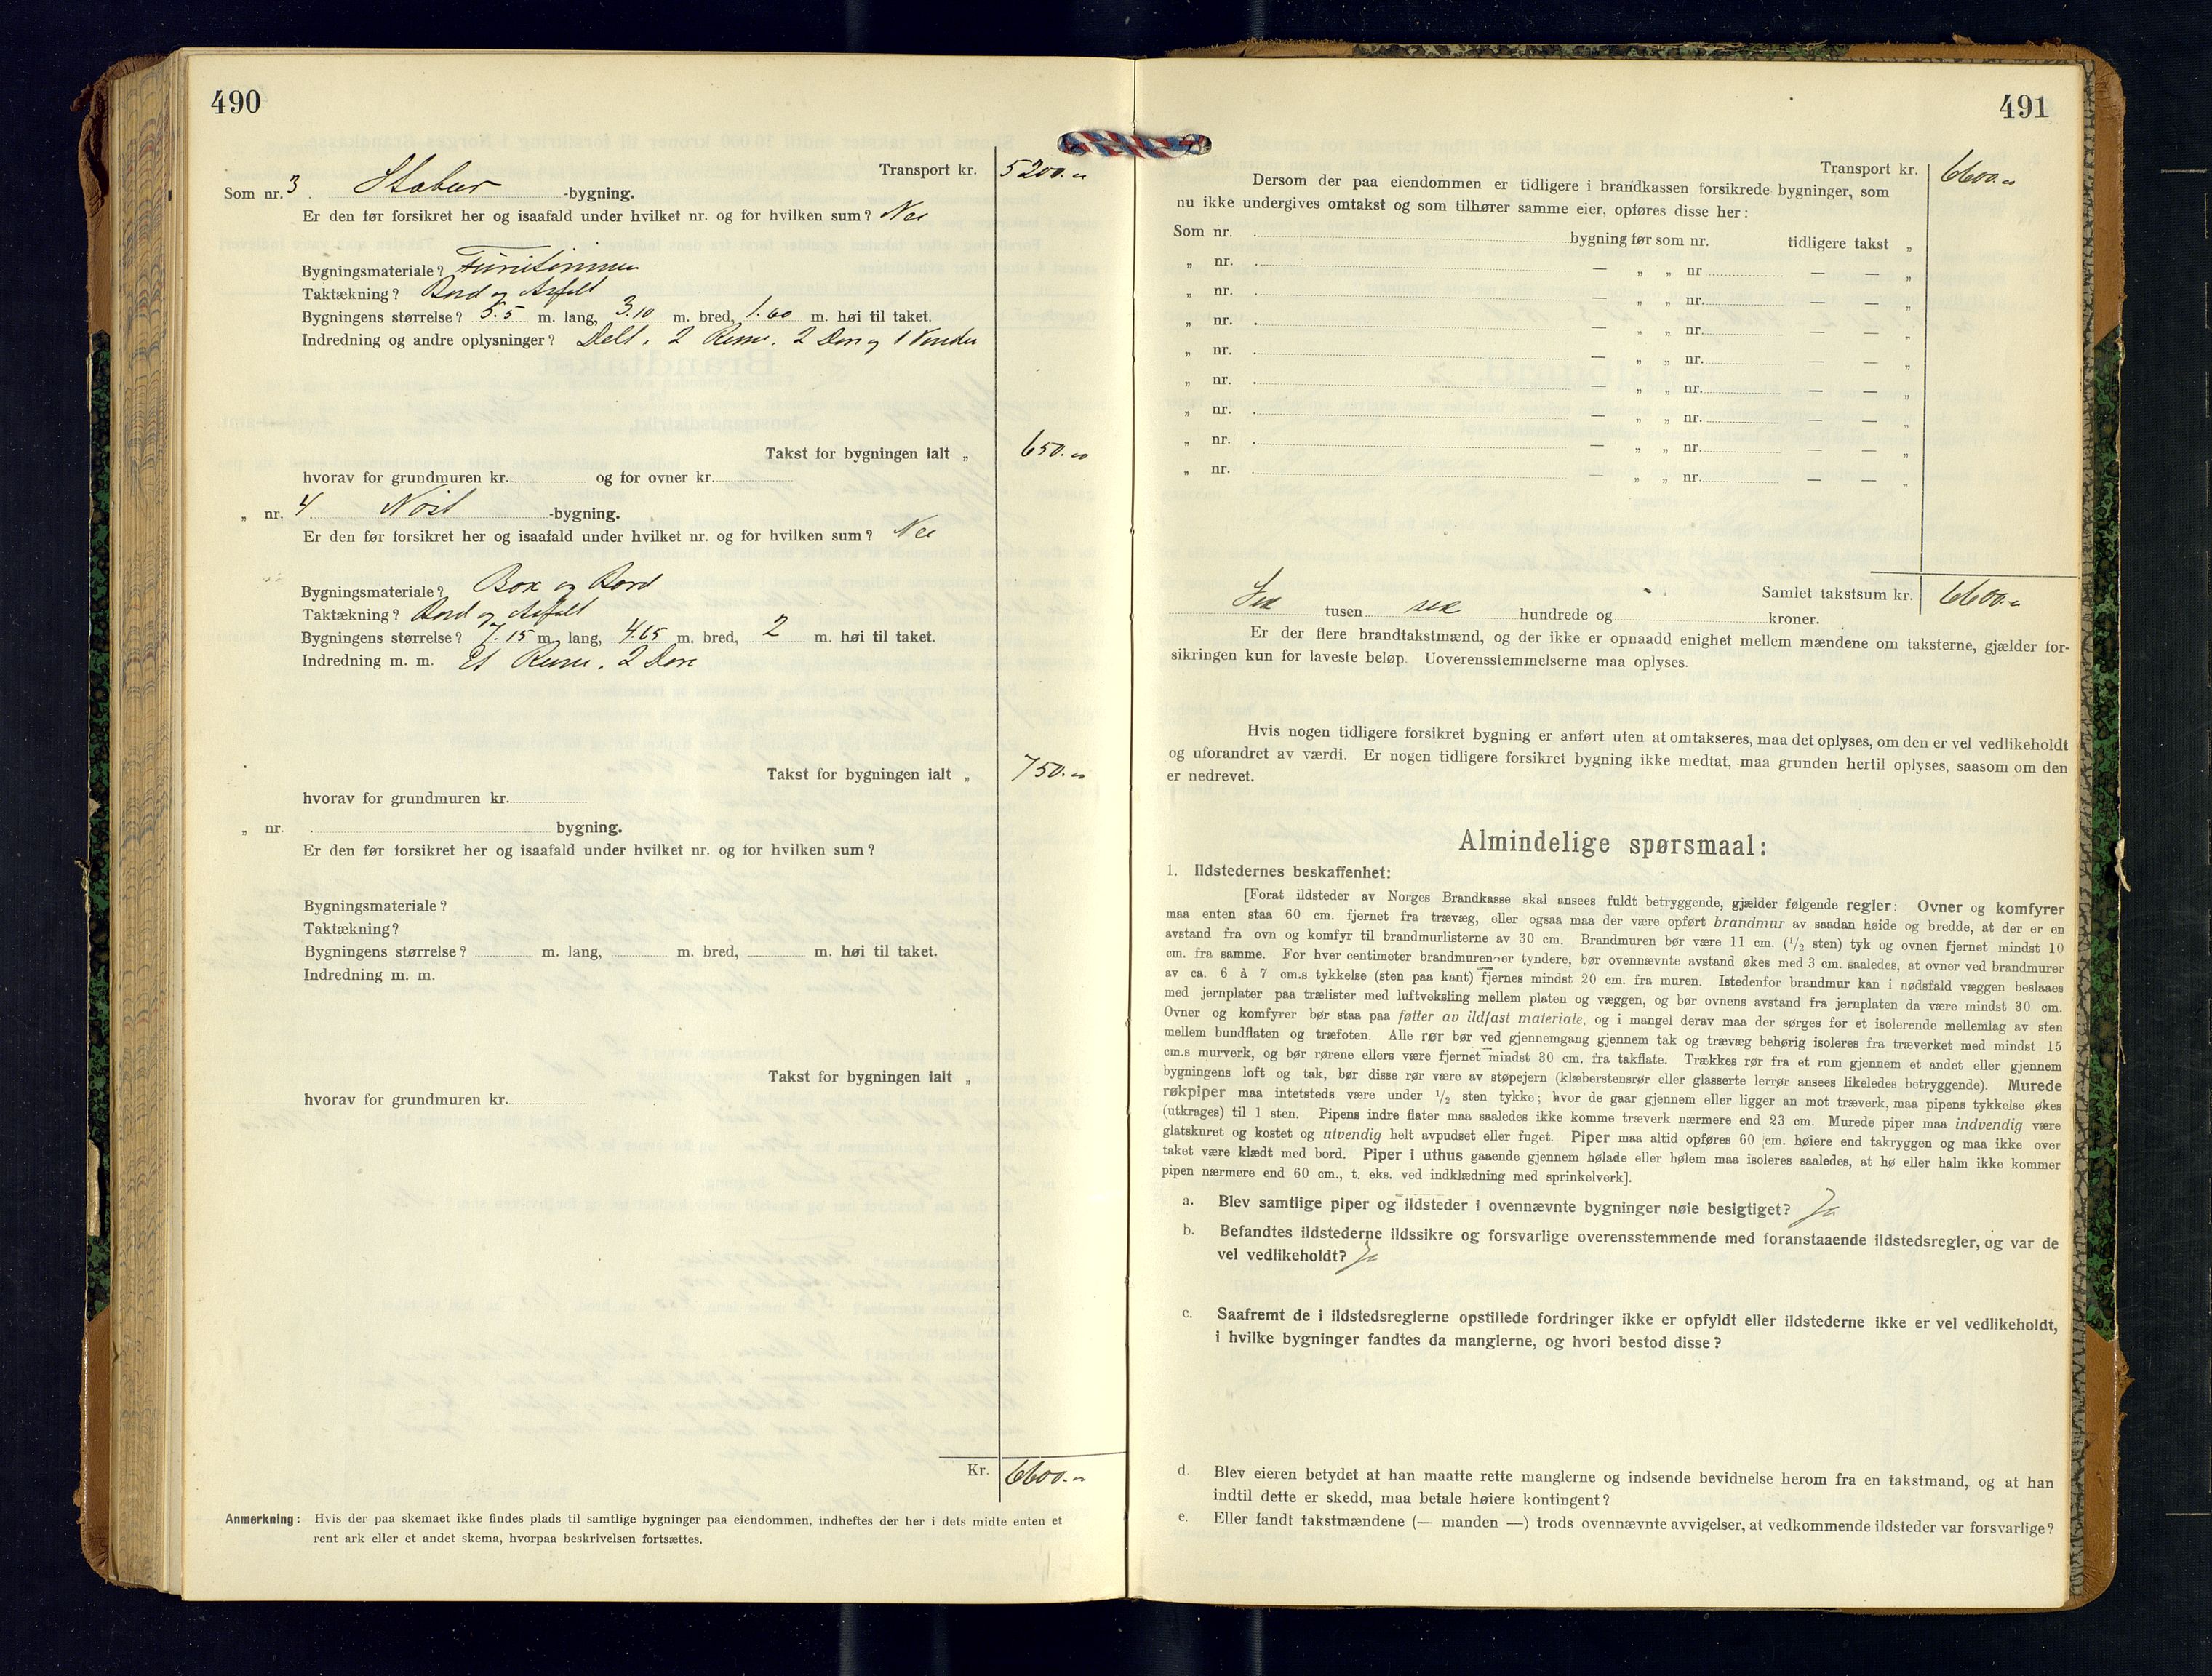 490
Transport kr. 5200.-
Som nr. 3. Stabur -bygning.
Er den før forsikret her og isaafald under hvilket nr. og for hvilken sum? Nei
Bygningsmateriale? Furutømmer
Taktækning? Bord og Asfalt
Bygningens størrelse? 5.5 m. lang, 3.10 m. bred, 1.60 m. høi til taket.
Indredning og andre oplysninger? Delt. 2 Rum. 2 Dør og 1 Vindu
Takst for bygningen ialt „ 650.-
hvorav for grundmuren kr. og for ovner kr.
„ nr. 4. Nøst -bygning.
Er den før forsikret her og isaafald under hvilket nr. og for hvilken sum? Nei
Bygningsmateriale? Box og Bord
Taktækning? Bord og Asfalt
Bygningens størrelse? 7.15 m. lang, 4.65 m. bred, 2 m. høi til taket.
Indredning m. m. Et Rum. 2 Døre
Takst for bygningen ialt „ 750.-
hvorav for grundmuren kr.
„ nr. . bygning.
Er den før forsikret her og isaafald under hvilket nr. og for hvilken sum?
Bygningsmateriale?
Taktækning?
Bygningens størrelse? m. lang, m. bred, m. høi til taket.
Indredning m. m.
Takst for bygningen ialt „
hvorav for grundmuren kr.
Kr. 6600.-
Anmerkning: Hvis der paa skemaet ikke findes plads til samtlige bygninger paa eiendommen, indheftes der her i dets midte enten et
rent ark eller et andet skema, hvorpaa beskrivelsen fortsættes.
491
Transport kr. 6600.-
Dersom der paa eiendommen er tidligere i brandkassen forsikrede bygninger, som
nu ikke undergives omtakst og som tilhører samme eier, opføres disse her:
Som nr. . bygning før som nr. tidligere takst „
„ nr. . — „ „ nr. — — „
„ nr. . — „ „ nr. — — „
„ nr. . — „ „ nr. — — „
„ nr. . — „ „ nr. — — „
„ nr. . — „ „ nr. — — „
„ nr. . — „ „ nr. — — „
„ nr. . — „ „ nr. — — „
„ nr. . — „ „ nr. — — „
Samlet takstsum kr. 6600.-
Sex tusen sex hundrede og kroner.
Er der flere brandtakstmænd, og der ikke er opnaadd enighet mellem mændene om taksterne, gjælder for-
sikringen kun for laveste beløp. Uoverensstemmelserne maa oplyses.
Hvis nogen tidligere forsikret bygning er anført uten at omtakseres, maa det oplyses, om den er vel vedlikeholdt
og uforandret av værdi. Er nogen tidligere forsikret bygning ikke medtat, maa grunden hertil oplyses, saasom om den
er nedrevet.
Almindelige spørsmaal:
1. Ildstedernes beskaffenhet:
[Forat ildsteder av Norges Brandkasse skal ansees fuldt betryggende, gjælder følgende regler: Ovner og komfyrer
maa enten staa 60 cm. fjernet fra trævæg, eller ogsaa maa der være opført brandmur av saadan høide og bredde, at der er en
avstand fra ovn og komfyr til brandmurlisterne av 30 cm. Brandmuren bør være 11 cm. (1/2 sten) tyk og ovnen fjernet mindst 10
cm. fra samme. For hver centimeter brandmuren er tyndere, bør ovennævnte avstand økes med 3 cm. saaledes, at ovner ved brandmurer
av ca. 6 à 7 cm.s tykkelse (sten paa kant) fjernes mindst 20 cm. fra muren. Istedenfor brandmur kan i nødsfald væggen beslaaes
med jernplater paa trælister med luftveksling mellem platen og væggen, og bør ovnens avstand fra jernplaten da være mindst 30 cm.
Ovner og komfyrer bør staa paa føtter av ildfast materiale, og i mangel derav maa der sørges for et isolerende mellemlag av sten
mellem bundflaten og træfoten. Alle rør bør ved gjennemgang gjennem tak og trævæg behørig isoleres fra træverket med mindst 15
cm.s murverk, og bør rørene ellers være fjernet mindst 30 cm. fra takflate. Trækkes rør fra et rum gjennem et andet eller gjennem
bygningens loft og tak, bør disse rør være av støpejern (klæberstensrør eller glasserte lerrør ansees likeledes betryggende). Murede
røkpiper maa intetsteds være under 1/2 sten tykke; hvor de gaar gjennem eller ligger an mot træverk, maa pipens tykkelse økes
(utkrages) til 1 sten. Pipens indre flater maa saaledes ikke komme træverk nærmere end 23 cm. Murede piper maa indvendig være
glatskuret og kostet og utvendig helt avpudset eller fuget. Piper maa altid opføres 60 cm. høiere end takryggen og maa ikke over
taket være klædt med bord. Piper i uthus gaaende gjennem hølade eller hølem maa isoleres saaledes, at hø eller halm ikke kommer
pipen nærmere end 60 cm., t. eks. ved indklædning med sprinkelverk].
a. Blev samtlige piper og ildsteder i ovennævnte bygninger nøie besigtiget? Ja
b. Befandtes ildstederne ildssikre og forsvarlige overensstemmende med foranstaaende ildstedsregler, og var de
vel vedlikeholdt? Ja
c. Saafremt de i ildstedsreglerne opstillede fordringer ikke er opfyldt eller ildstederne ikke er vel vedlikeholdt,
i hvilke bygninger fandtes da manglerne, og hvori bestod disse?
d. Blev eieren betydet at han maatte rette manglerne og indsende bevidnelse herom fra en takstmand, og at han
indtil dette er skedd, maa betale høiere kontingent?
e. Eller fandt takstmændene (— manden —) trods ovennævnte avvigelser, at vedkommende ildsteder var forsvarlige?